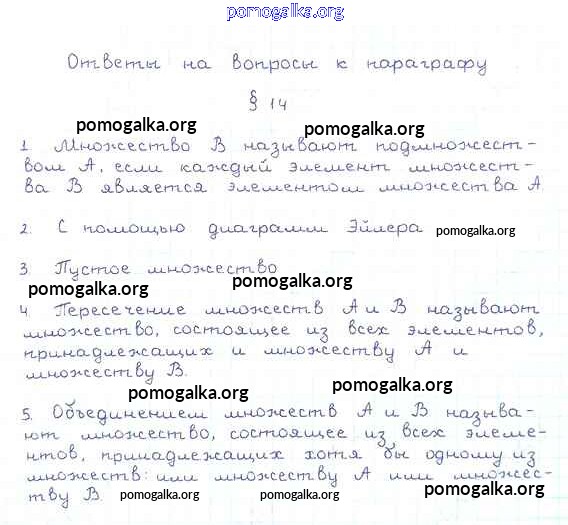 pomogalka.org
Ответы на вопросы к параграфу
§ 14
pomogalka.org pomogalka.org
1. Множество В называют подмножест-
вом А, если каждый элемент множест-
ва В является элементом множества А
2. С помощью диаграмм Эйлера pomogalka.org
3. Пустое множество
pomogalka.org pomogalka.org
4. Пересечение множеств А и В называют
множество, состоящее из всех элементов,
принадлежащих и множеству А и
множеству В.
pomogalka.org pomogalka.org
5. Объединением множеств А и В называ-
ют множество, состоящее из всех элеме-
нтов, принадлежащих хотя бы одному из
множеств: или множеству А или множес-
тву В pomogalka.org pomogalka.org pomogalka.org